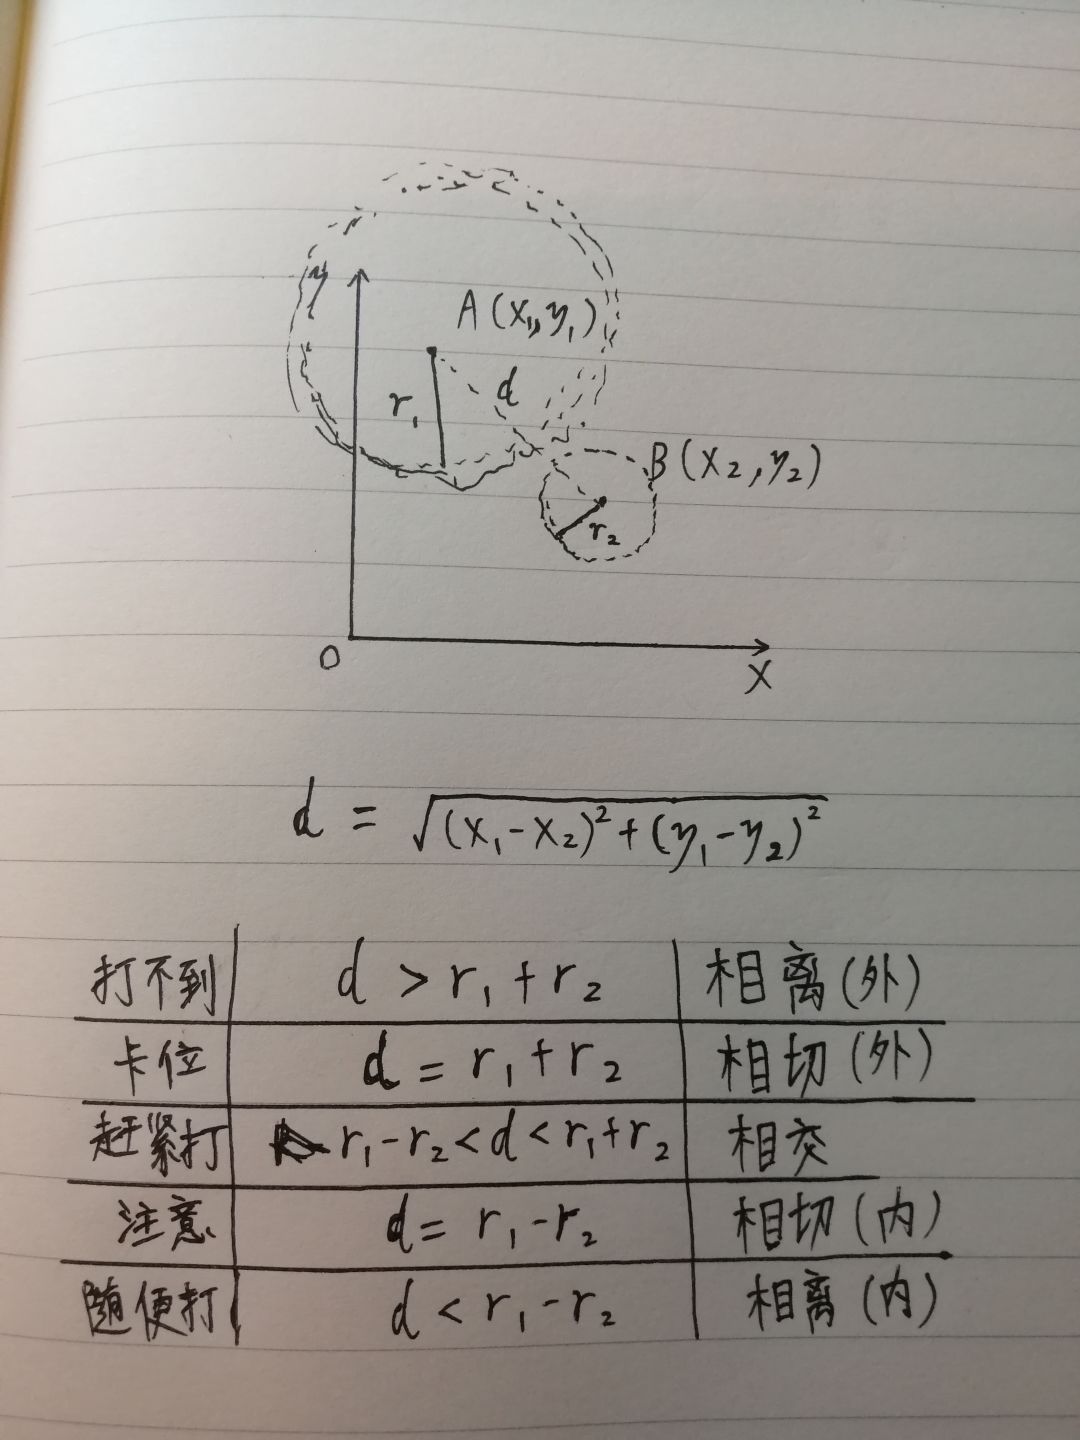 y
A(x₁,y₁)
d
r₁
B(x₂,y₂)
r₂
O
X
d = √(x₁-x₂)²+(y₁-y₂)²
打不到 d > r₁+r₂ 相离(外)
卡位 d = r₁+r₂ 相切(外)
赶紧打 r₁-r₂<d<r₁+r₂ 相交
注意 d= r₁-r₂ 相切(内)
随便打 d < r₁-r₂ 相离(内)